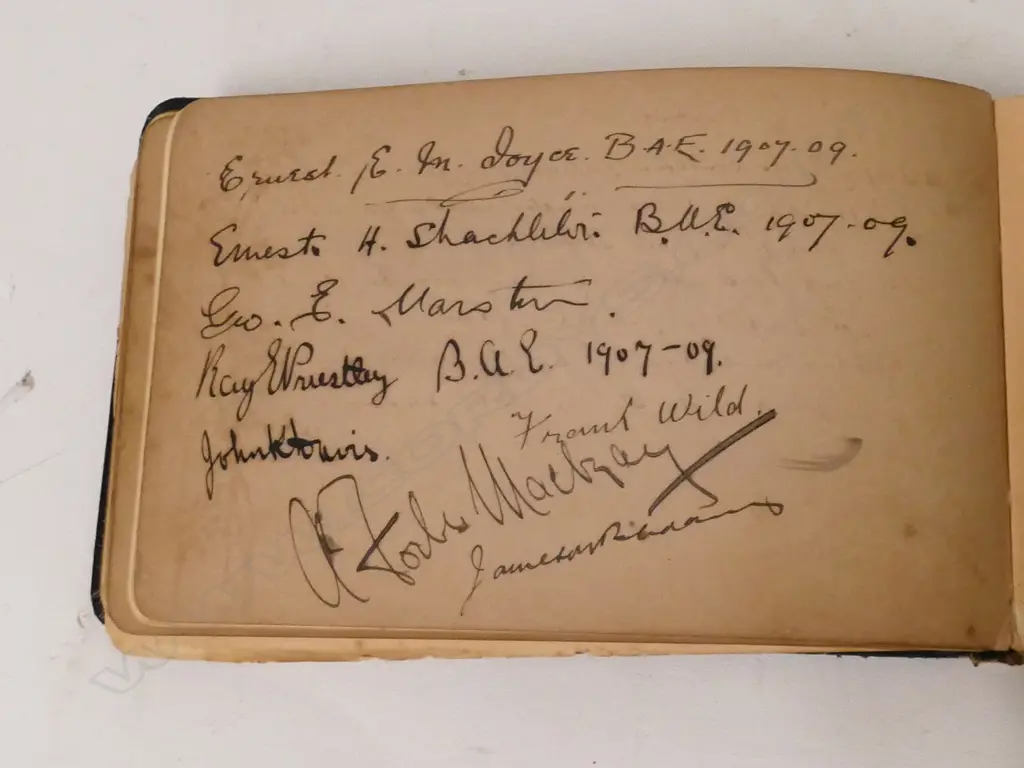 Ernest. E. M. Joyce. B.A.E. 1907-09.
Ernest. H. Shackleton. B.A.E. 1907-09.
Geo. E. Marston.
Ray E Priestley B.A.E. 1907-09.
John K Davis.
Frank Wild.
A Forbes Mackay
Jameson B Adams